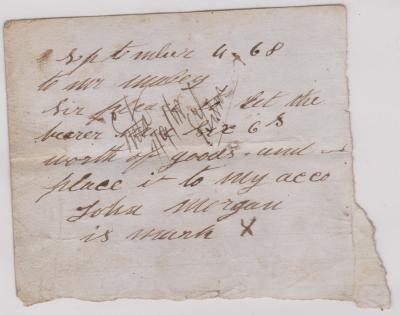 September 4 68
to mr mobey
Sir please let the
bearer have six 6 s
worth of goods and
place it to my acco
John Morgan
is mark X